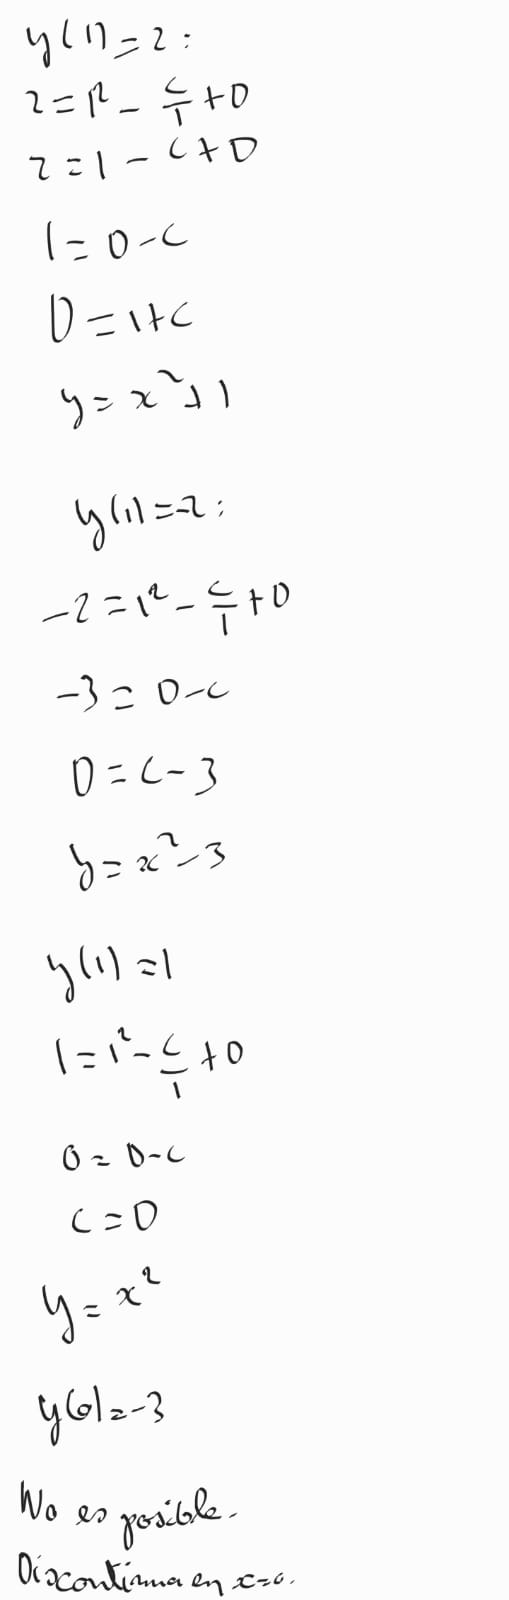 y(1)=2:
2=1²-C/1+D
2=1-C+D
1=D-C
D=1+C
y=x²+1
y(1)=-2:
-2=1²-C/1+D
-3=D-C
D=C-3
y=x²-3
y(1)=1
1=1²-C/1+D
0=D-C
C=D
y=x²
y(0)=-3
No es posible.
Discontinua en x=0.